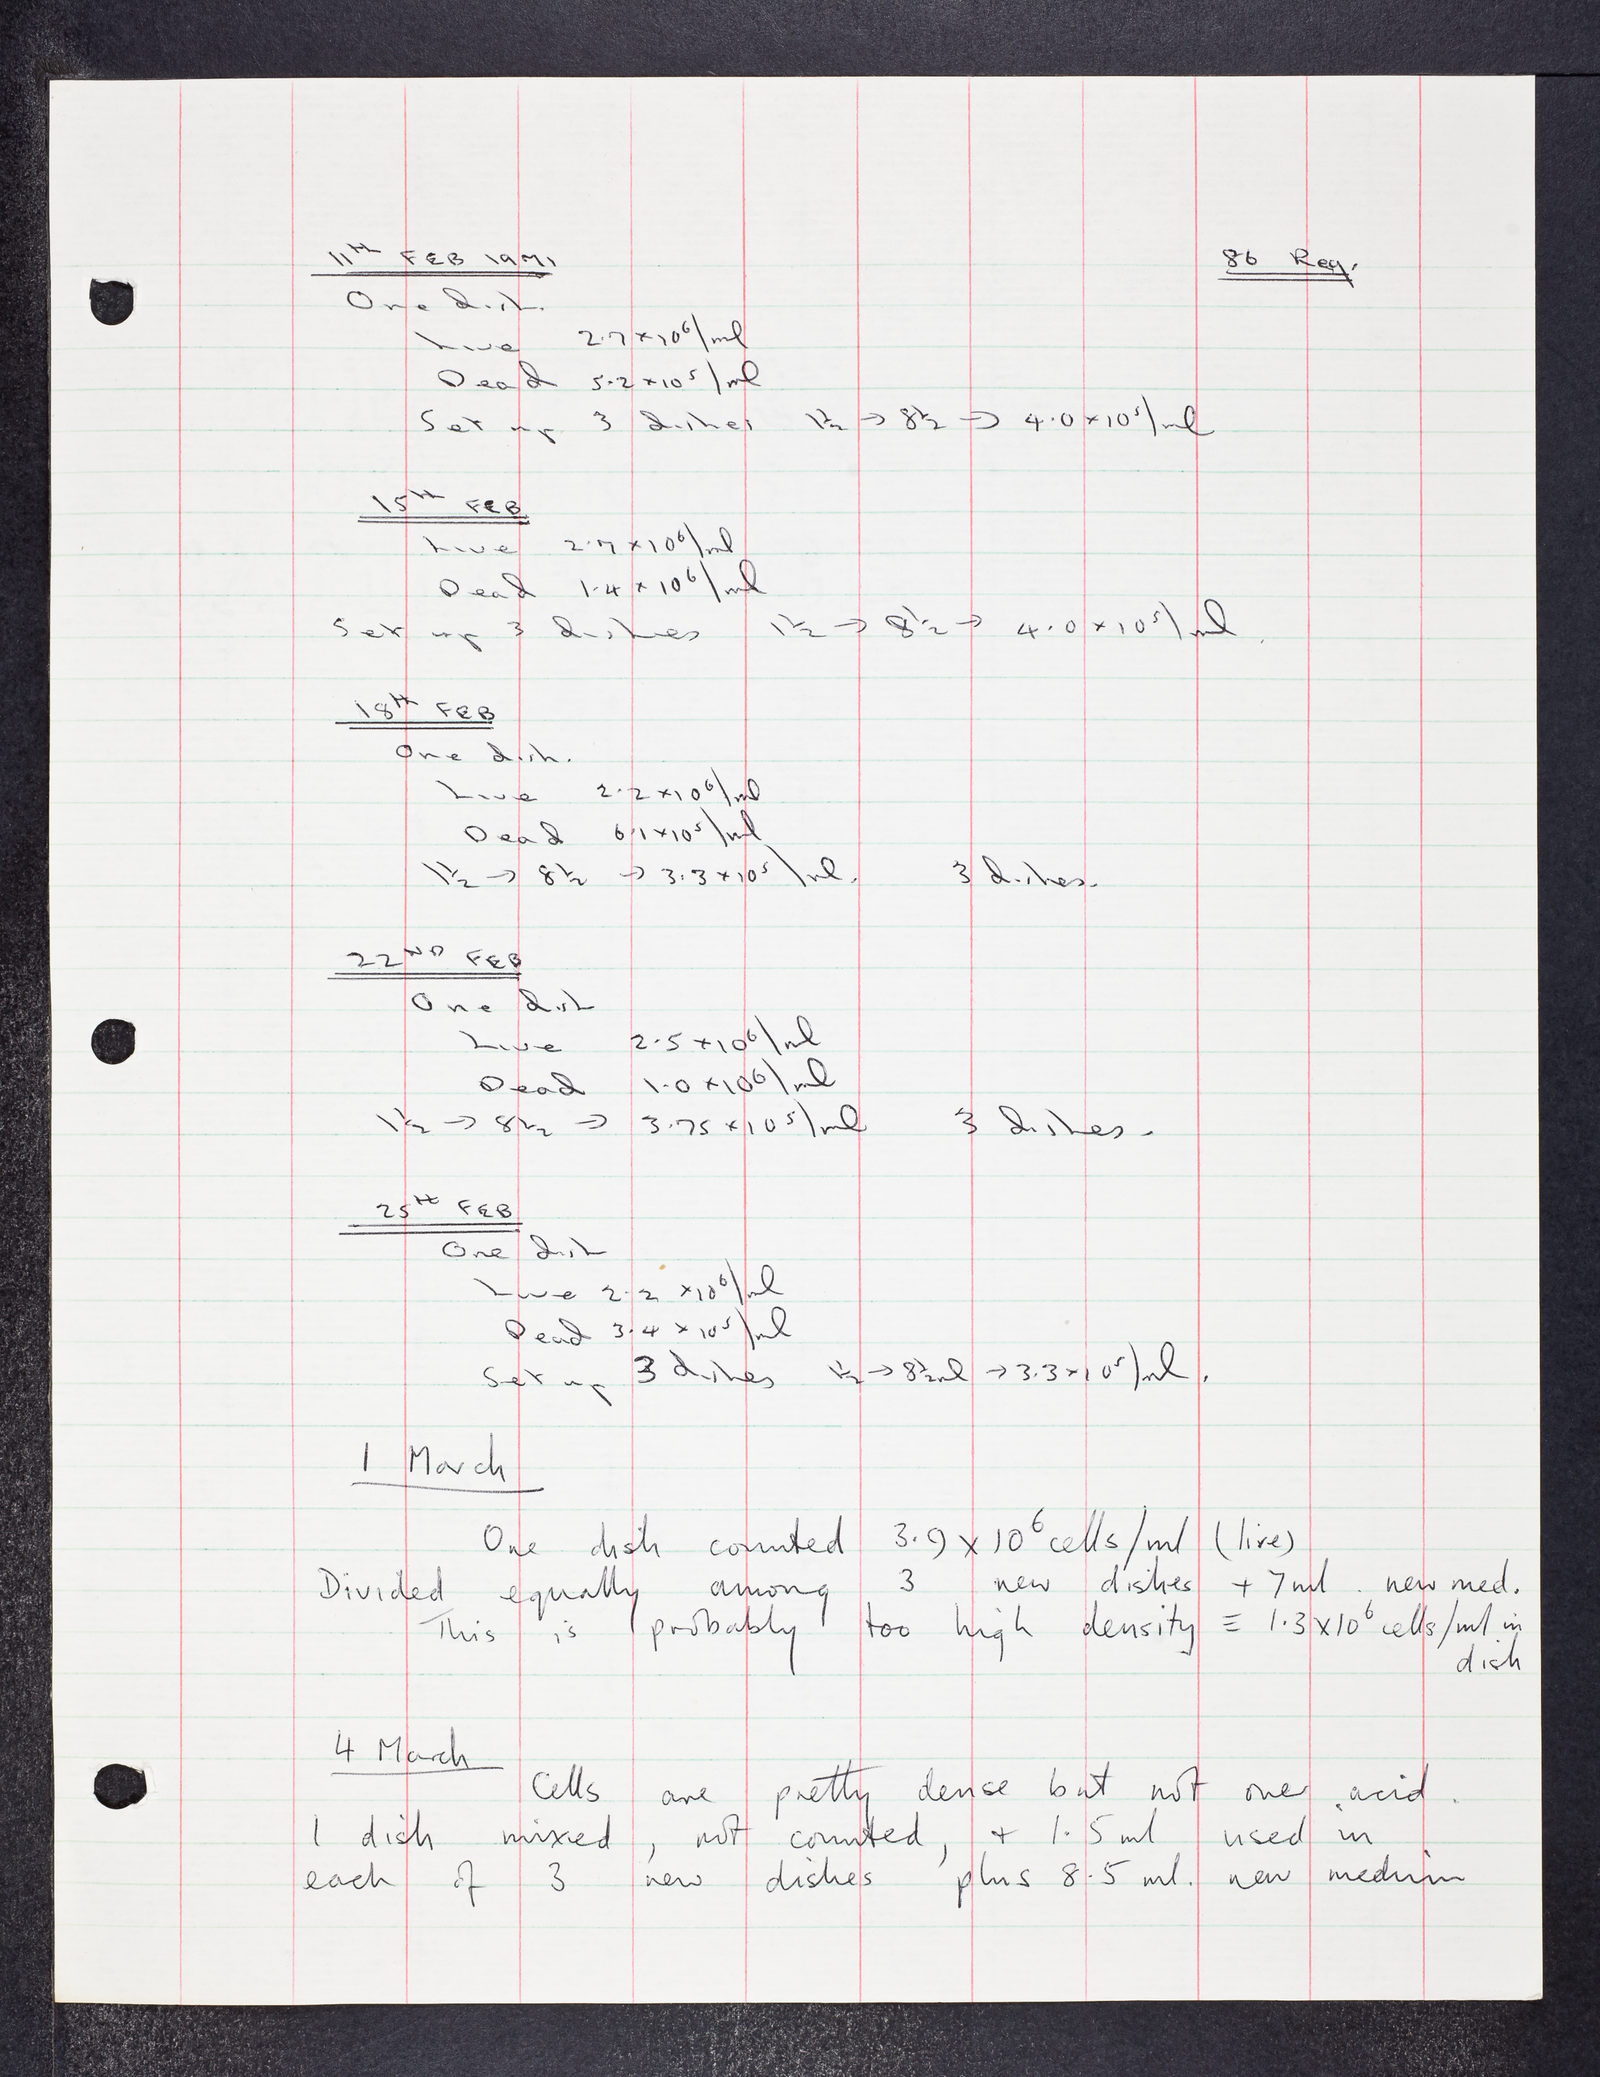 11TH FEB 1971
86 Reg.
One dish.
Live 2.7×10⁶/ml
Dead 5.2×10⁵/ml
Set up 3 dishes 1½ → 8½ → 4.0×10⁵/ml
15TH FEB
Live 2.7×10⁶/ml
Dead 1.4×10⁶/ml
Set up 3 dishes 1½ → 8½ → 4.0×10⁵/ml.
18TH FEB
One dish.
Live 2.2×10⁶/ml
Dead 6.1×10⁵/ml
1½ → 8½ → 3.3×10⁵/ml. 3 dishes.
22ND FEB
One dish
Live 2.5×10⁶/ml
Dead 1.0×10⁶/ml
1½ → 8½ → 3.75×10⁵/ml 3 dishes.
25TH FEB
One dish
Live 2.2×10⁶/ml
Dead 3.4×10⁵/ml
Set up 3 dishes 1½ → 8½ml → 3.3×10⁵/ml.
1 March
One dish counted 3.9×10⁶ cells/ml (live)
Divided equally among 3 new dishes + 7ml. new med.
This is probably too high density ≡ 1.3×10⁶ cells/ml in
dish
4 March
Cells are pretty dense but not over acid.
1 dish mixed, not counted, + 1.5ml used in
each of 3 new dishes plus 8.5ml. new medium